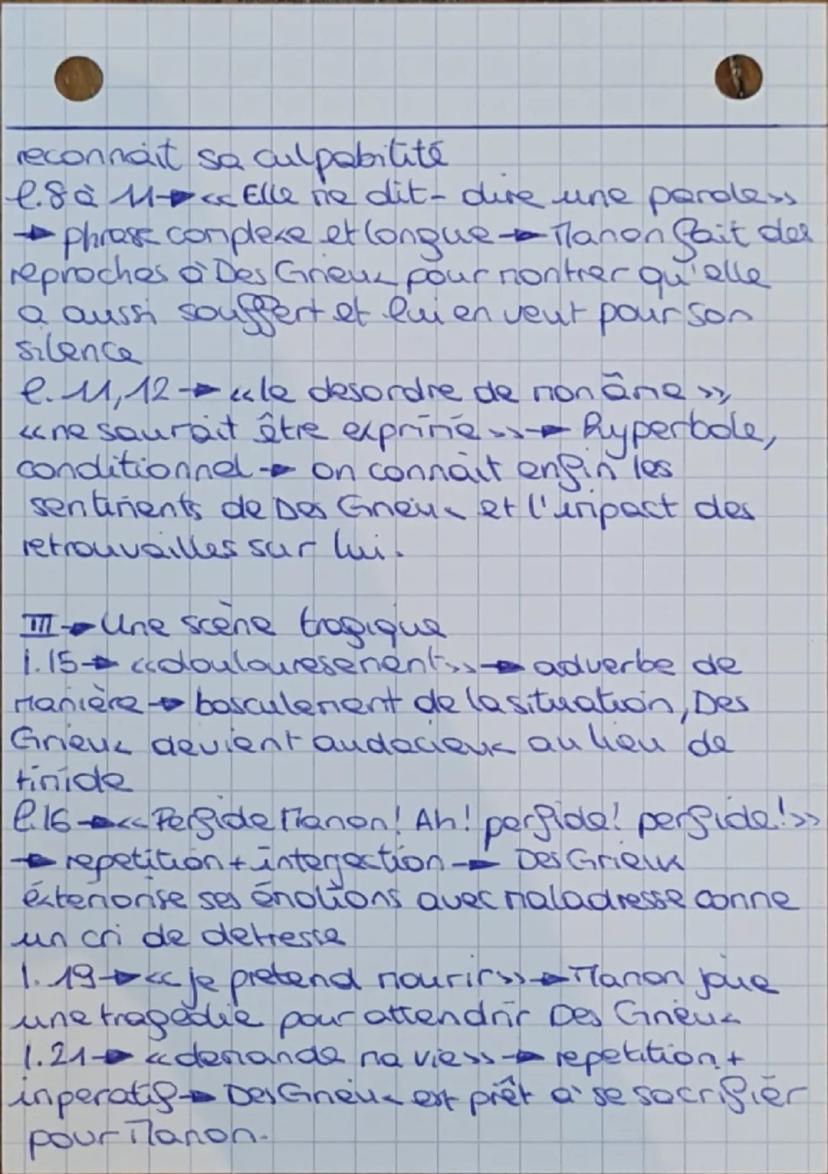 reconnait sa culpabilité
l.8 à 11 → «Elle ne dit - dire une parole»
→ phrase complexe et longue → Manon fait des
reproches à Des Grieux pour montrer qu'elle
a aussi souffert et lui en veut pour son
silence
l.11,12 → «le desordre de mon âme»,
«ne saurait être exprimé» → hyperbole,
conditionnel → on connait enfin les
sentiments de Des Grieux et l'impact des
retrouvailles sur lui.
III → Une scène tragique
l.15 → «douleuresement» → adverbe de
manière → basculement de la situation, Des
Grieux devient audacieux au lieu de
timide
l.16 → «Perfide Manon! Ah! perfide! perfide!»
→ repetition + interjection → Des Grieux
éxteriorise ses émotions avec maladresse comme
un cri de detresse
l.19 → «je pretend mourir» → Manon joue
une tragédie pour attendrir Des Grieux
l.21 → «demande ma vie» → repetition +
imperatif → Des Grieux est prêt à se sacrifier
pour Manon.